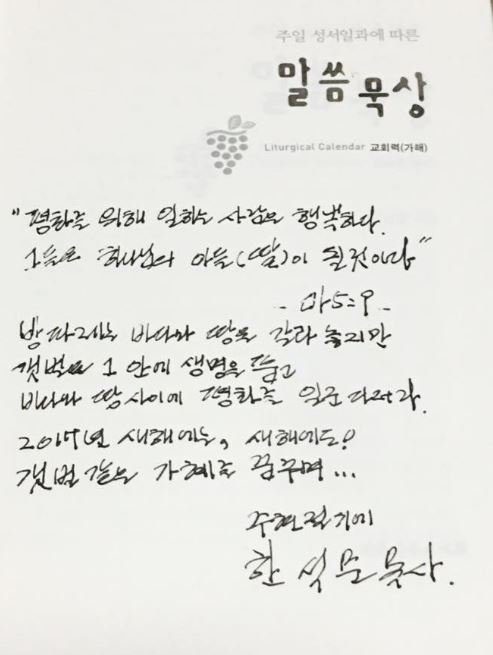 주일 성서일과에 따른
말씀묵상
Liturgical Calendar 교회력(가해)
"평화를 위해 일하는 사람은 행복하다.
그들은 하나님의 아들(딸)이 될것이다"
- 마5:9 -
방파제는 바다와 땅을 갈라 놓지만
갯벌은 그 안에 생명을 품고
바다와 땅 사이에 평화를 일군다
2017년 새해에는, 새해에도!
갯벌 같은 꿈꾸며...
주현절기에
한석문 목사.